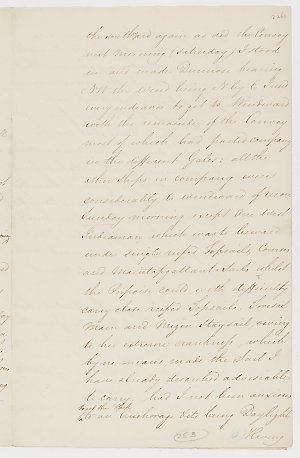 the southward again as did the Convoy
next Morning (Saturday) I stood
in and made Dunnose bearing
NW the Wind being N by E tried
every endeavor to get to Windward
with the remainder of the Convoy
most of which had parted company
in the different Gales; all the
Ships in company were
considerably to windward of us on
Sunday morning except One West
Indiaman which was to leeward
under single reefed Topsails, Courses
and Maintopgallant Sails whilst
the Porpoise could with difficulty
carry close reefed Topsails, Foresail
Main and Mizen Staysail, owing
to her extreme crankness, which
by no means made the Sail I
have already described adviseable
to carry, had I not been anxious
to get the Ship
to an Anchorage it being Daylight
Having